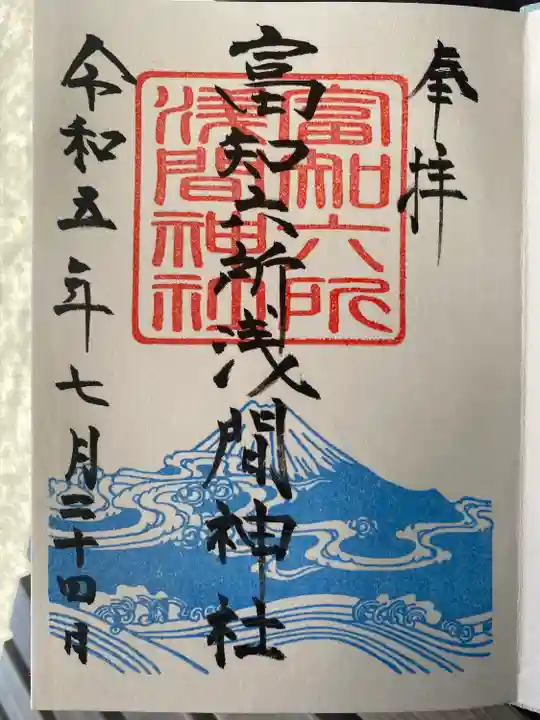 奉拝
富知六所浅間神社
富知六所
浅間神社
令和五年七月二十四日